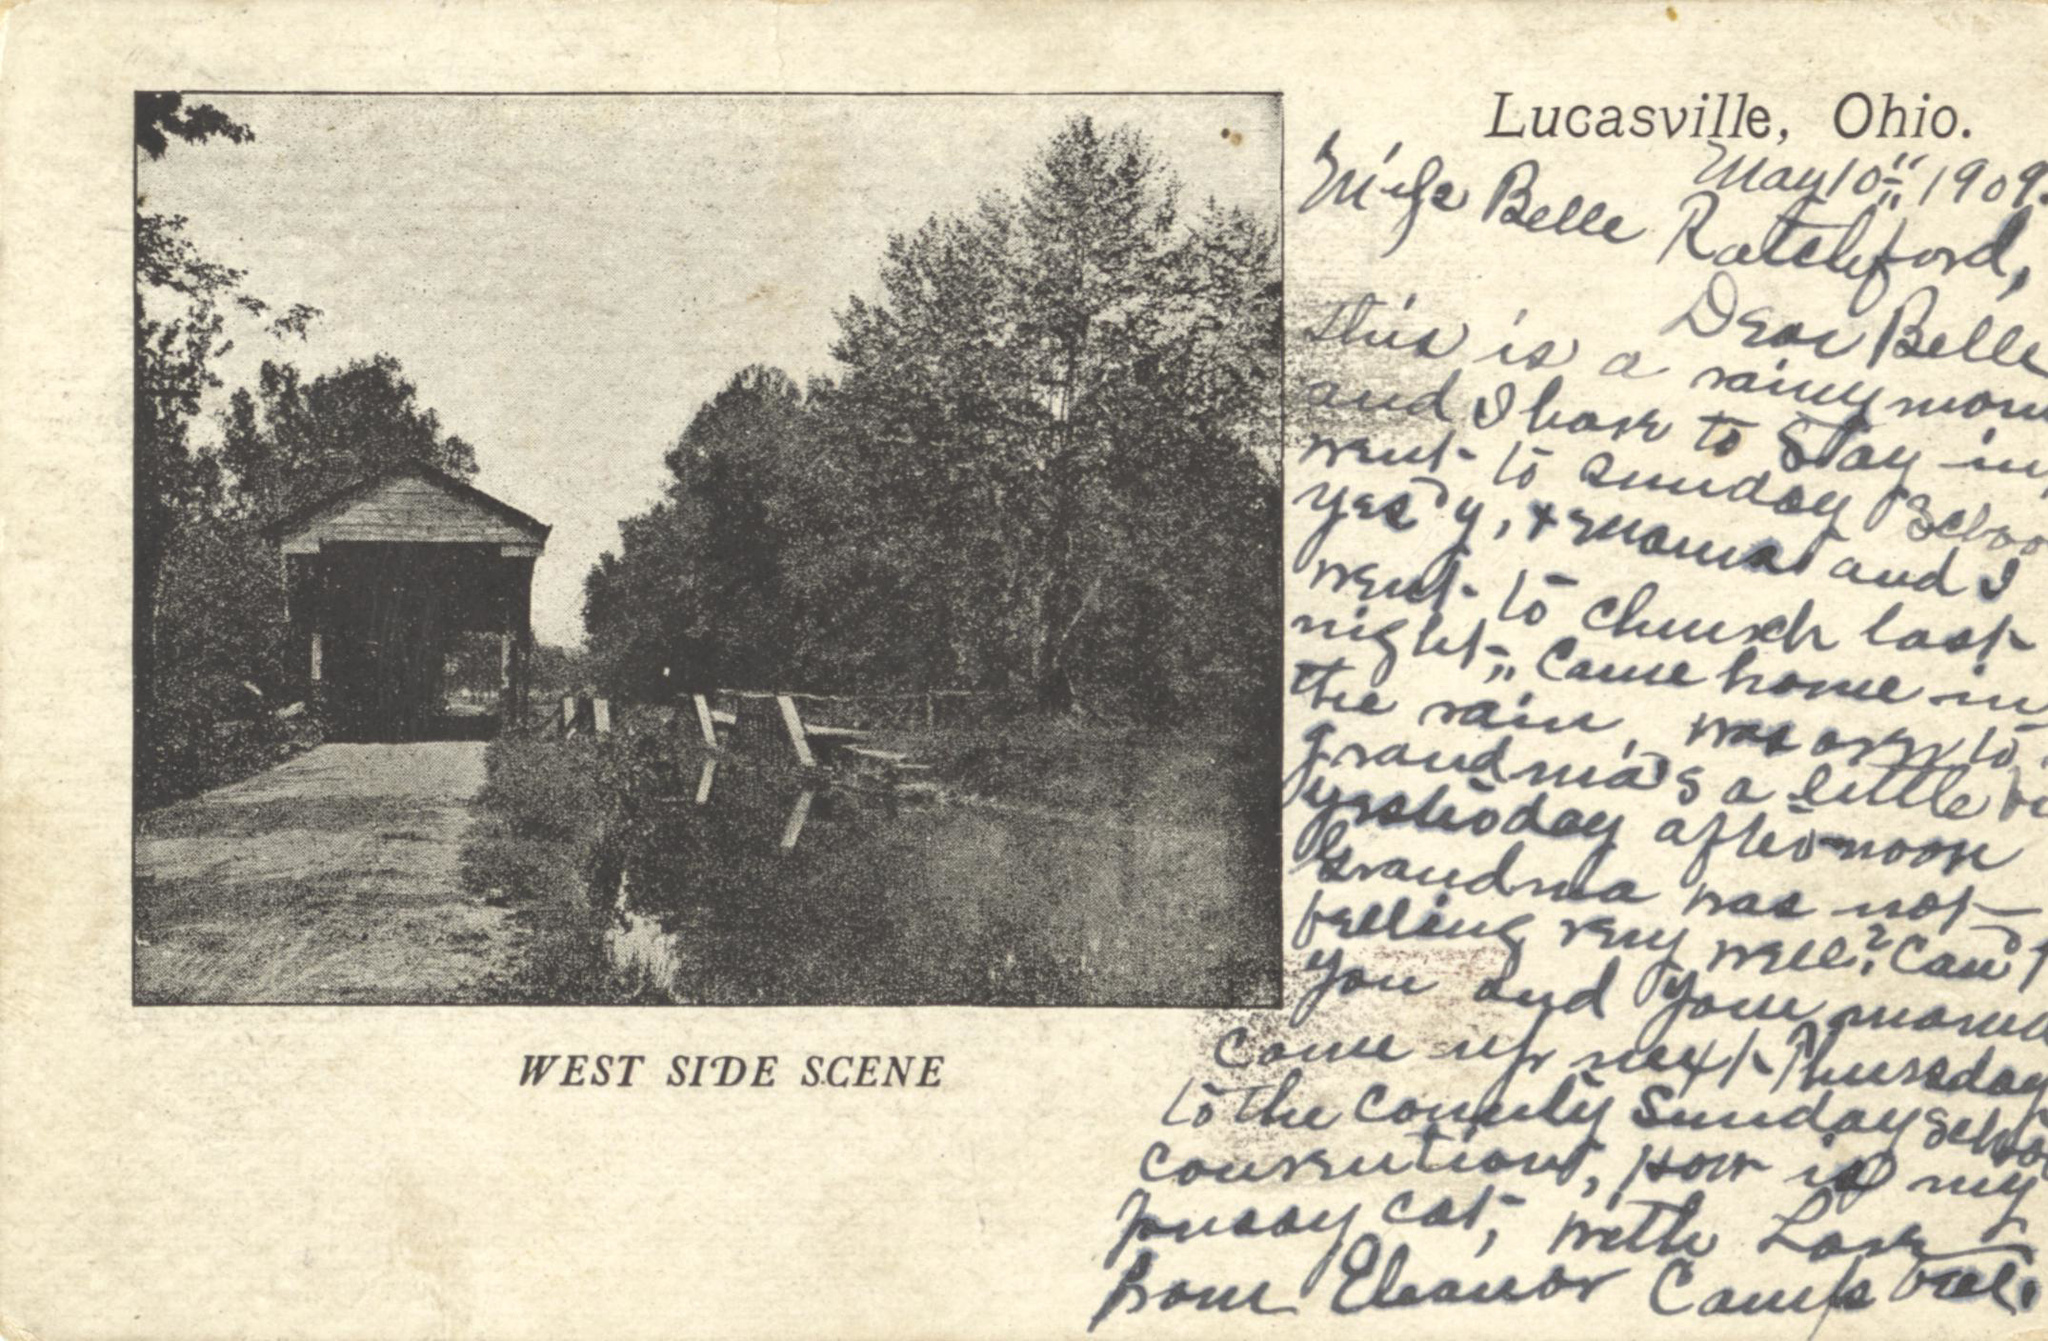 Lucasville, Ohio.
May 10" 1909.
Miss Belle Ratchford,
Dear Belle
this is a rainy morn
and I have to stay in,
went to Sunday Schoo
yes'd'y, & Mama and I
went to church last
night, came home in
the rain, was over to
grandma's a little bi
yesterday afternoon
Grandma was not
feeling very well? Can't
you and your mama
come up next Thursday
to the County Sunday Schoo
convention, How is my
pussy cat, with Love
from Eleanor Campbell.
WEST SIDE SCENE